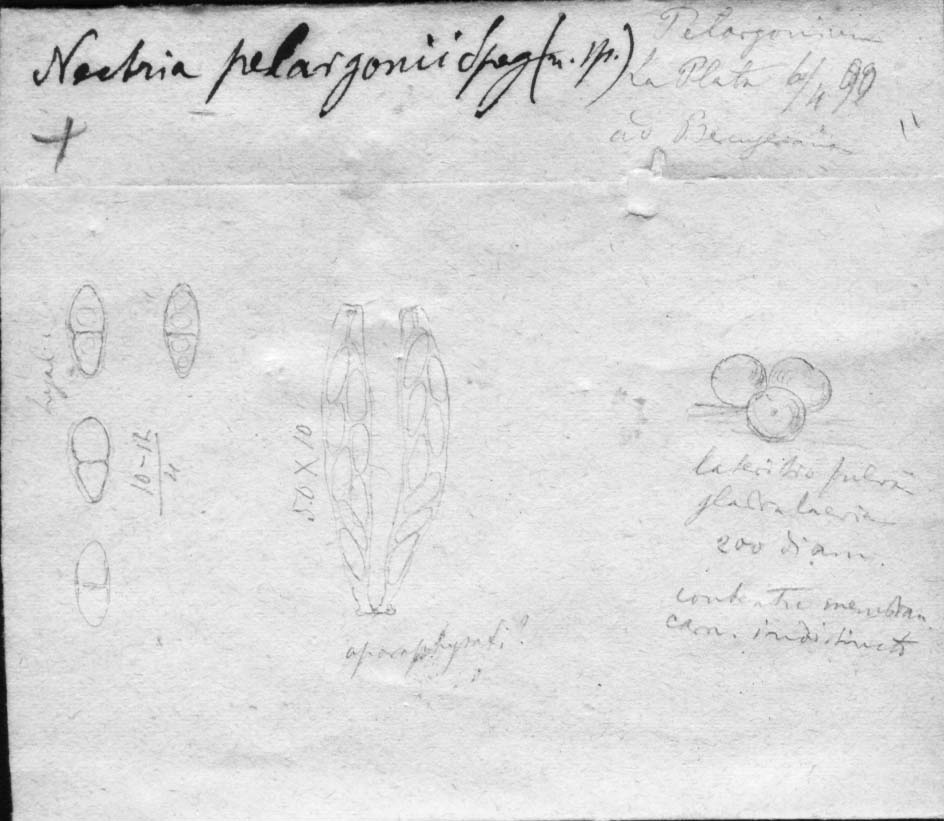 Nectria pelargonii Speg (n. sp.)
Pelargonium
La Plata 6/4 99
ad
hyali
10-12
4
50 X 10
aparaphysati?
lateritio
glabra laevia
200 diam.
contextu membran.
carn. indistincto